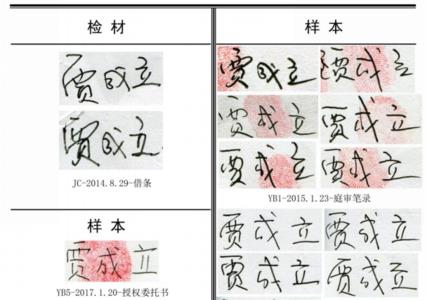 检材
样本
贾成立
贾成立
JC-2014.8.29-借条
样本
贾成立
YB5-2017.1.20-授权委托书
贾成立 贾成立
贾成立 贾成立
贾成立 贾成立
YB1-2015.1.23-庭审笔录
贾成立 贾成立
贾成立 贾成立